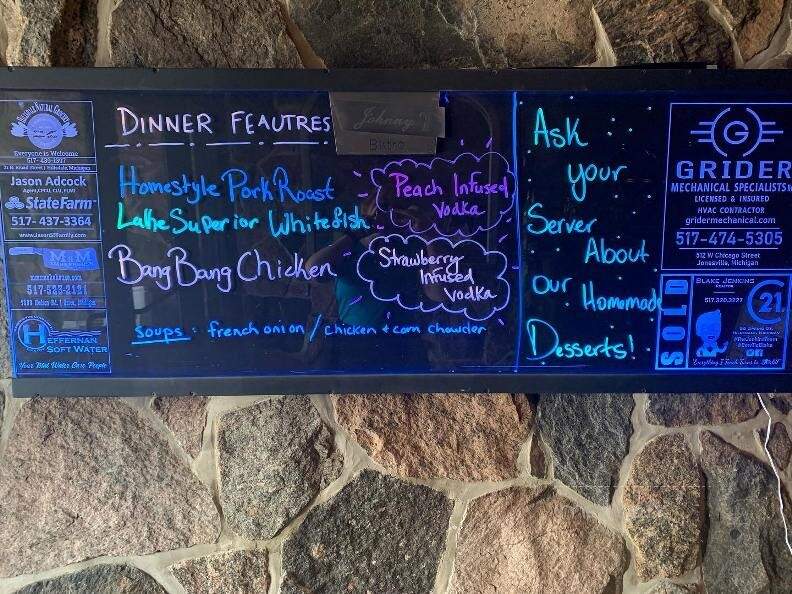 Everyone is Welcome
517-439-1397
Jason Adcock
State Farm
517-437-3364
HEFFERNAN
SOFT WATER
Your Bad Water Care People
DINNER FEAUTRES
Johnny T
Bistro
Homestyle Pork Roast
Lake Superior Whitefish
BangBang Chicken
Peach Infused
Vodka
Strawberry
Infused
Vodka
soups: french onion / chicken + corn chowder
Ask
your
Server
About
our Homemade
Desserts!
G
GRIDER
MECHANICAL SPECIALISTS
LICENSED & INSURED
HVAC CONTRACTOR
gridermechanical.com
517-474-5305
512 W Chicago Street
Jonesville, Michigan
SOLD
BLAKE JENKINS
REALTOR
517.320.3227
21